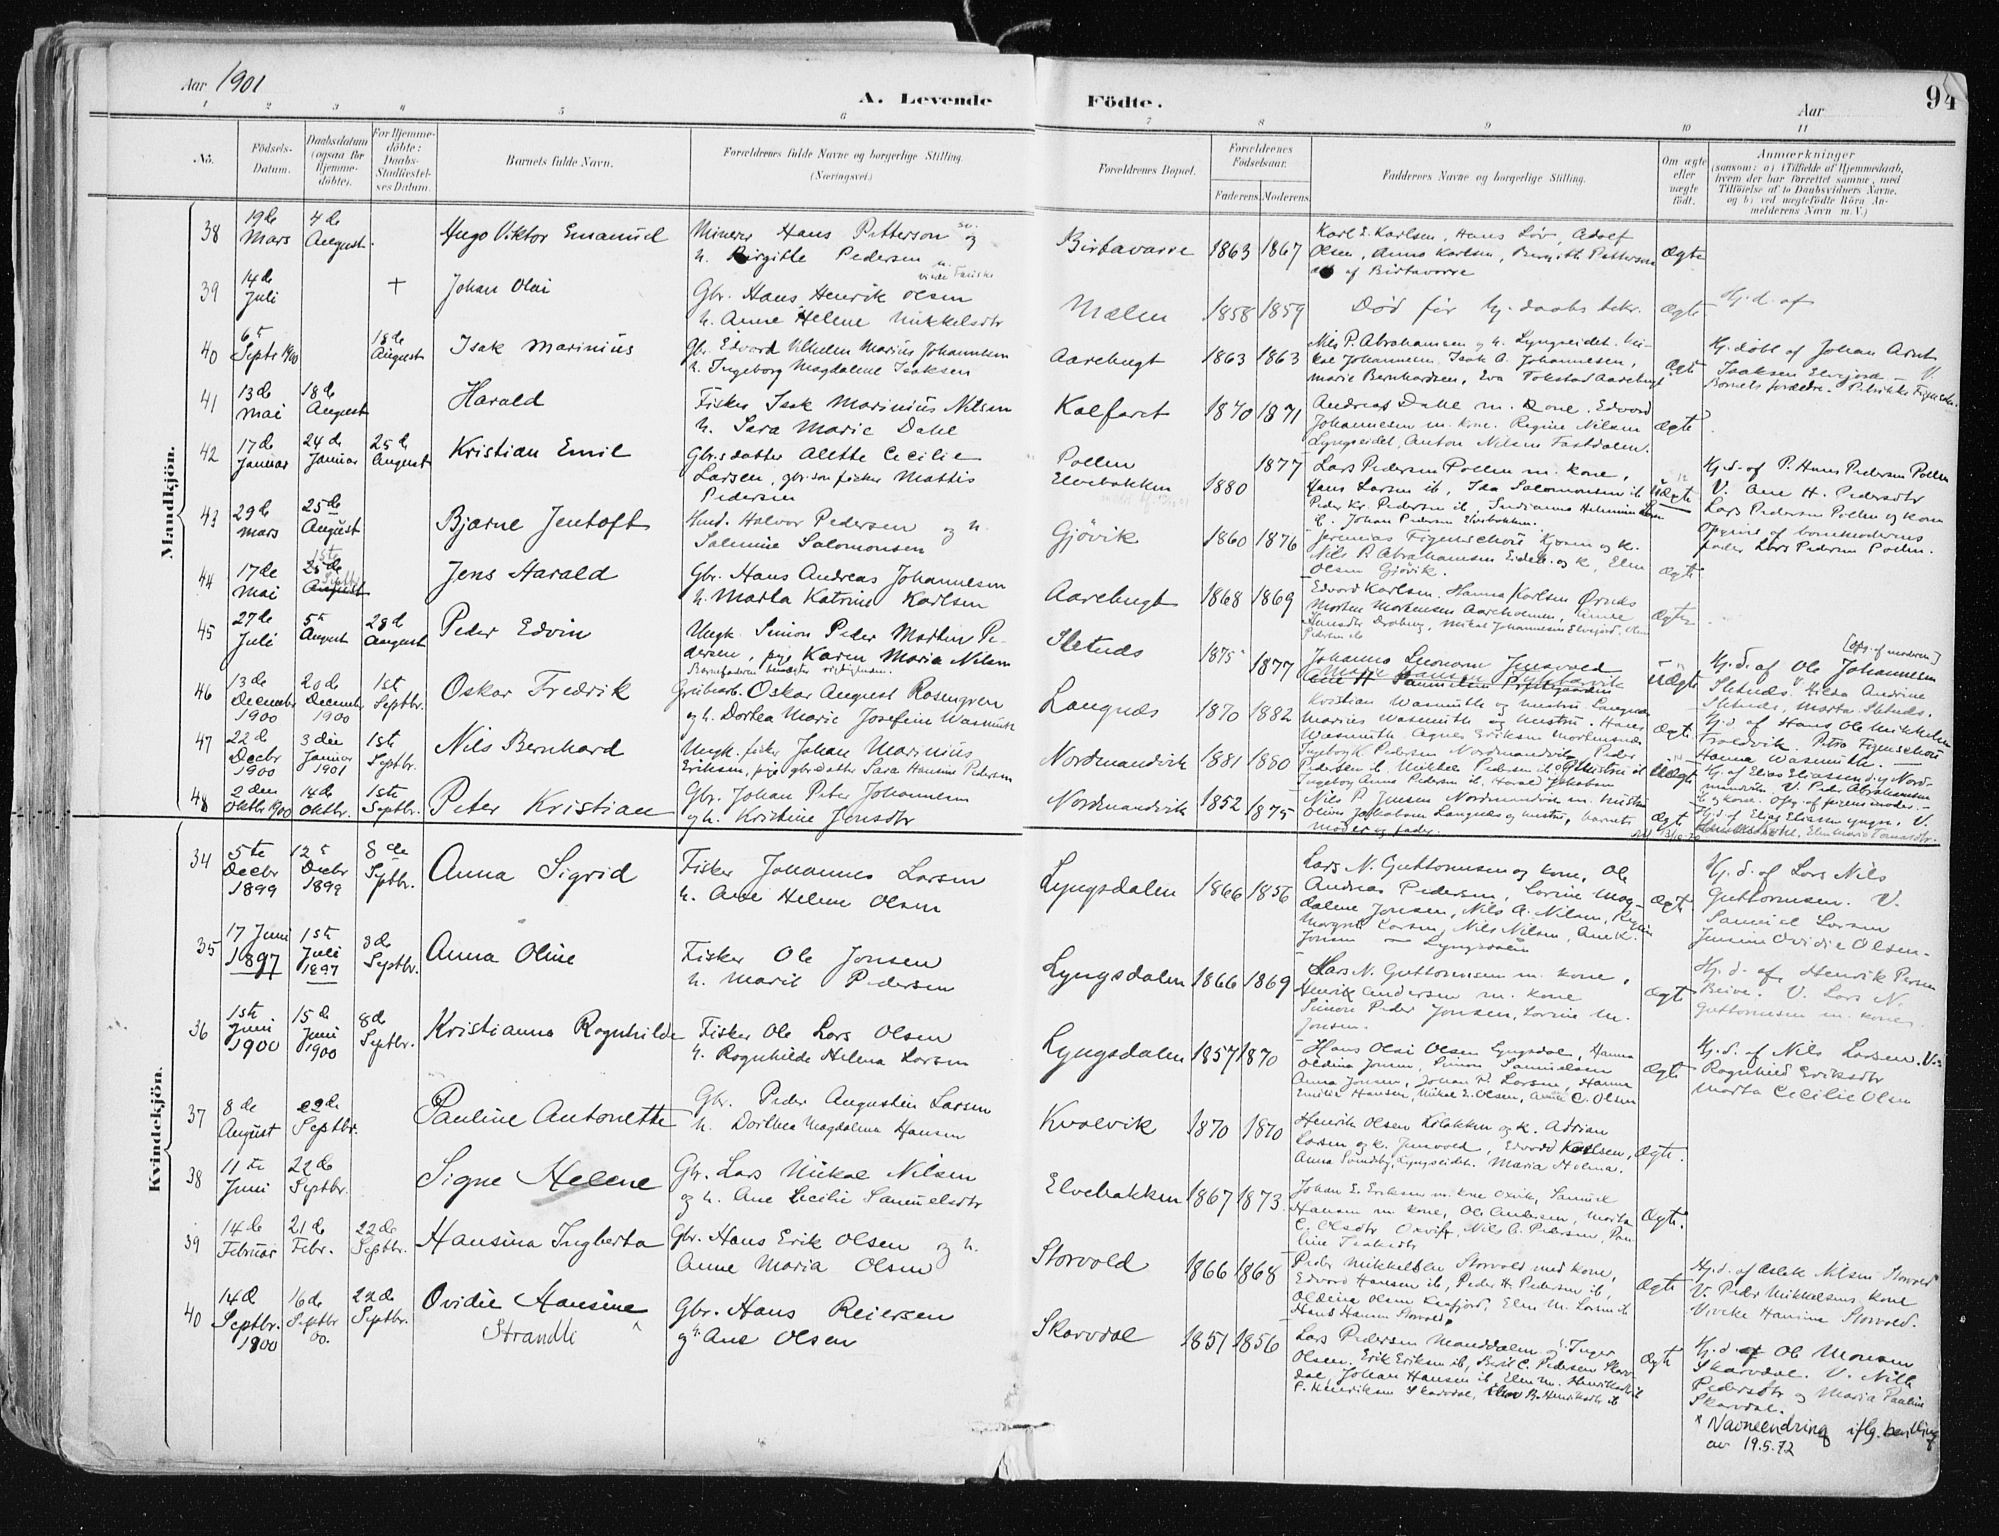 Aar 1901
A. Levende Födte.
Aar
94
1 2 3 4 5 6 7 8 9 10 11
No.
Födsels-Datum.
Daabsdatum (ogsaa for Hjemme-döbte).
For Hjemme-döbte: Daabs-Stadfæstel-ses Datum.
Barnets fulde Navn.
Forældrenes fulde Navne og borgerlige Stilling.
(Næringsvei.)
Forældrenes Bopæl.
Forældrenes Födselsaar.
Faderens. Moderens.
Faddernes Navne og borgerlige Stilling.
Om ægte eller uægte födt.
Anmærkninger
(saasom: a) i Tilfælde af Hjemmedaab, hvem der har forrettet samme, med Tilföielse af to Daabsvidners Navne, og b) ved uægtefödte Börn Anmelderens Navn m. V.)
Mandkjön.
38 19de Mars 4de August. Hugo Viktor Emanuel
Minerer Hans Petterson og
h. Birgitte Pedersen
Birtavarre 1863 1867
Karl E. Karlsen, Hans Löv, Adolf
Olsen, Anna Karlsen, Bergith Pettersen
af Birtavarre
Ægte
39 14de Juli + Johan Olai
Gbr. Hans Henrik Olsen
h. Anne Helene Mikkelsdtr
Malen 1858 1859
Død før hj. daabs bekr. ægte
Hj. d. af
40 6te Septr 1900 18de August Isak Marinius
Gbr. Edvard Vilhelm Marius Johannesen
h. Ingeborg Magdalene Isaksen
Aarebugt 1863 1863
Nils P. Abrahamsen og h. Lyngseidet. Mi-
kal Johannesen, Isak A. Johannesen,
Marie Bernhardsen, Eva Tokstad Aarebugt
ægte
Hj. döbt af Johan Arnt
Isaksen Elvejord. V.
Barnets forældre.
41 13de Mai 18de August Harald
Fisker Isak Marinius Nilsen
h. Sara Marie Dahl
Kalfaret 1870 1871
Andreas Dahl m. Kone. Edvard
Johannesen m. kone. Regine Nilsen
Lyngseidet, Anton Nilsen Fastdalen.
ægte
42 17de Januar 24de Januar 25de August Kristian Emil
Gbr.sdatter Alette Cecilie
Larsen, gbr.søn fisker Mattis
Pedersen
Pollen
Elvebakken 1880 1877
Lars Pedersen Pollen m. kone,
Hans Larsen ib, Ida Salomonsen ib
Peder Kr. Pedersen ib,
Johan Pedersen Elvebakken.
Uægte
Hj. d. af P. Hans Pedersen Pollen
V. Ane H. Pedersdtr
Lars Pedersen Pollen og kone
Opgivet af barnemoderens
fader Lars Pedersen Pollen.
43 29de Mars 25de August Bjarne Jentoft
Hmd. Halvor Pedersen og h.
Salemine Salomonsen
Gjövik 1860 1876
Jeremias Figenschou Kjosen og k.
Nils P. Abrahamsen Eidet og k, Elen
Olsen Gjövik.
ægte
44 17de Mai 25de August 1ste Septbr Jens Harald
Gbr. Hans Andreas Johannesen
h. Marta Katrine Karlsen
Aarebugt 1868 1869
Edvard Karlsen, Hanna Karlsen Örnes
Morten Mortensen Aareholmen, Anne
ægte
45 27de Juli 5te August 28de August Peder Edvin
Ungk. Simon Peder Martin Pe-
dersen, pige Karen Maria Nilsen
Sletnes 1875 1877
Johannes
Uægte
[opg. af moderen]
Hj. d. af Ole Johannesen
Sletnes, Hilda Andrine
Sletnes, Marta Sletnes.
46 13de December 1900 20de December 1900 1ste Septbr. Oskar Fredrik
Grubearb. Oskar August Rosengren
og h. Dortea Marie Josefine Wasmuth
Langnes 1870 1882
Kristian Wasmuth og hustru, Langnes
Marius Wasmuth og hustru,
Wasmuth, Agnes Eriksen
ægte
Hj. d. af Hans Ole Mikkelsen
Troldvik. Petra Figenschou
Hanna Wasmuth.
47 22de Decbr 1900 3die Januar 1901 1ste Septbr. Nils Bernhard
Ungk. fisker Johan Marinius
Eriksen, pige gbr.datter Sara Hansine Pedersen
Nordmandvik 1881 1880
Ingebrgt Pedersen Nordmandvik, Peder
Pedersen ib. Mikkel Pedersen ib
Ingeborg Anna Pedersen ib.
Uægte
Hj. af Elias Eliassen Nord-
mandvik. V. Peder Abrahamsen
48 2den Oktbr 1900 14de Oktbr. 1ste Septbr. Peter Kristian
Gbr. Johan Peter Johannesen
og h. Kristine Jensdtr
Nordmandvik 1852 1875
Nils P. Jensen Nordmandvik m. hustru
Oliver Jakobsen Langnes og hustru, barnets
moder og fader.
ægte
Hj. d. af Elias Eliassen yngre. V.
Kvindekjön.
34 5te Decbr 1899 12te Decbr 1899 8de Septbr. Anna Sigrid
Fisker Johannes Larsen
h. Ane Helene Olsen
Lyngsdalen 1866 1856
Lars N. Guttormsen og kone, Ole
Andreas Pedersen, Lovine Mag-
dalene Jonsen, Nils A. Nilsen,
Margret Larsen, Nils Nilsen, Ane K.
Jonsen — Lyngsdalen
ægte
Hj. d. af Lars Nils
Guttormsen. V.
Samuel Larsen
Jensine Ovidie Olsen.
35 17 Juni 1897 1ste Juli 1897 8de Septbr. Anna Oline
Fisker Ole Jonsen
h. Marit Pedersen
Lyngsdalen 1866 1869
Lars N. Guttormsen m. kone,
Henrik Andersen m. kone
Simon Peder Jonsen, Lovine M.
Jonsen.
ægte
Hj. d. af Henrik Persen
Beive. V. Lars N.
Guttormsen m. kone.
36 1ste Juni 1900 15de Juni 1900 8de Septbr. Kristianna Ragnhilde
Fisker Ole Lars Olsen
h. Ragnhilde Helena Larsen
Lyngsdalen 1857 1870
Hans Olai Olsen Lyngsdal, Hanna
Oldina Jonsen, Simon Samuelsen
Anna Jonsen, Johan H. Larsen, Hanna
Emilie Hansen, Mikal E. Olsen, Anne C. Olsen
ægte
Hj. d. af Nils Larsen. V.
Ragnhild Eriksdtr
Marta Cecilie Olsen
37 8de August 22de Septbr. Pauline Antonette
Gbr. Peder Augustin Larsen
h. Dorthea Magdalena Hansen
Kvalvik 1870 1870
Henrik Olsen og k. Adrian
Larsen og k. Jensvold, Edvard Karlsen,
Anna Svendsby, Lyngseidet. Maria Helena.
ægte.
38 11te Juni 22de Septbr. Signe Helene
Gbr. Lars Mikal Nilsen
og h. Ane Cecilie Samuelsdtr
Elvebakken 1867 1873
Johan E. Eriksen m. kone Oxvik, Samuel
Hansen m. kone, Ole Andersen, Marta
C. Olsdtr Oxvik, Nils A. Pedersen, Pau-
line Isaksdtr
ægte.
39 14de Februar 21de Febr. 22de Septbr. Hansina Ingberta
Gbr. Hans Erik Olsen og h.
Anne Maria Olsen
Storvold 1866 1868
Peder Mikkelsen Storvold med kone,
Edvard Hansen ib, Peder H. Pedersen ib,
Oldine Olsen Kaafjord, Elen M. Larsen ib
Hans Hansen Storvold.
ægte
Hj. d. af Aslak Nilsen Storvold
V. Peder Mikkelsens kone
Viveke Hansine Storvold.
40 14de Septbr. 1900 16de Septbr 00. 22de Septbr. Ovidie Hansine
Strandli
Gbr. Hans Reiersen
og h. Ane Olsen
Skarvdal 1851 1856
Lars Pedersen Manddalen og Inger
Olsen, Erik Eriksen ib, Berit C. Pedersen Skarv-
dal, Johan Hansen ib, Elen M. Henriksdtr ib
P. Henriksen Skarvdal, B. Henriksdtr ib
ægte
Hj. d. af Ole Monsen
Skarvdal. V. Nille
Pedersdtr og Maria Pauline
Skarvdal.
x Navneendring iflg. bevilling
av 19.5.72